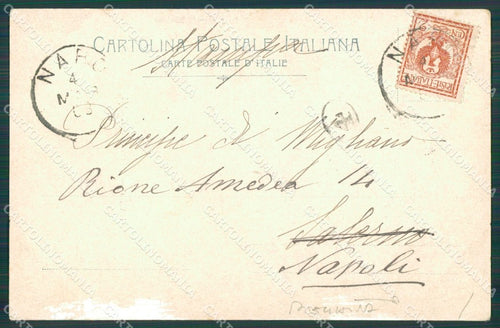 CARTOLINA POSTALE ITALIANA
Stampe
CARTE POSTALE D'ITALIE
NARO
4
MAG
03
NA
Principe di Mignano
Rione Amedeo 14
Salerno
Napoli
CARTOLINOMANIA